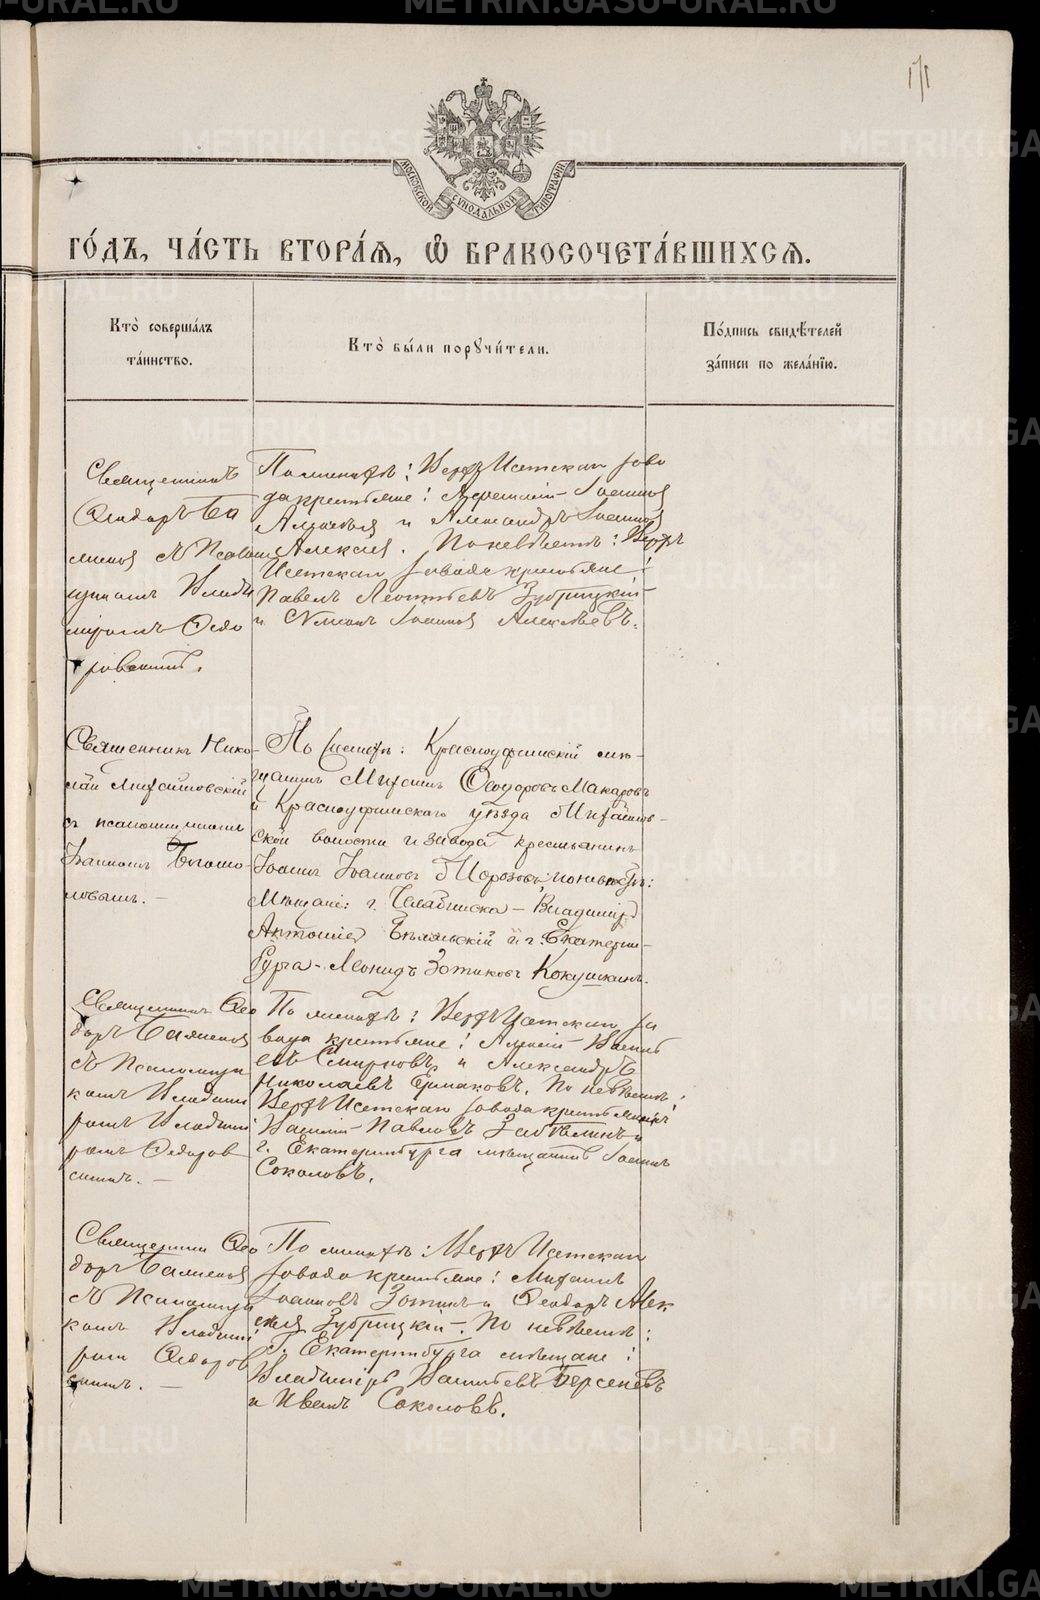 171
МОСКОВСКОЙ СѴНОДАЛЬНОЙ ТИПОГРАФІИ
ГО́ДЪ, ЧА́СТЬ ВТОРА́Ѧ, Ѽ БРАКОСОЧЕТА́ВШИХСѦ.
Кто̀ соверша́лъ
та́инство.
Кто̀ бы́ли порꙋчи́тели.
По́дпись свидѣ́телей
за́писи по жела́нїю.
Священникъ
Ѳеодоръ Ба
съ Псалом
щикомъ Влади
міромъ Ѳедо
ровскимъ.
По женихѣ: Верхъ Исетскаго заво
да крестьяне: Іоаннов
и Александръ Іоаннов
Алексѣев. По невѣстѣ: Верхъ
Исетскаго завода крестьяне:
Павелъ Леонтьевъ Зубрицкій
и Іоаннов Алексѣевъ.
Священникъ Нико-
лай Михайловскій
съ псаломщикомъ
Іоанномъ Богомо-
ловымъ. —
По женихѣ: Красноуфимскій мѣ-
щанинъ Михаилъ Ѳеодоровъ Макаровъ
и Красноуфимскаго уѣзда Михайлов-
ской волости и завода крестьянинъ
Іоаннъ Іоанновъ Морозовъ; по невѣстѣ:
Мѣщане: г. Челябинска — Владиміръ
Антоніев Бѣльскій и г. Екатерин-
бурга — Леонидъ Зотиковъ Кокушкинъ.
Священникъ Ѳео
доръ
съ Псаломщи
комъ Влади
ромъ Влади
ромъ Ѳедоров
скимъ. —
По женихѣ: Верхъ Исетскаго за
вода крестьяне: Василь
евъ Смирновъ и Александръ
Николаевъ Ермаковъ. По невѣстѣ:
Верхъ Исетскаго завода крестьянинъ
Павловъ Забѣлинъ и
г. Екатеринбурга мѣщанинъ Іоаннъ
Соколовъ.
Священникъ Ѳео
доръ
съ Псаломщи
комъ Влади
ромъ Ѳедоров
скимъ. —
По женихѣ: Верхъ Исетскаго
завода крестьяне: Михаилъ
Іоанновъ Зотинъ и Ѳеодоръ Алек
сѣев Зубрицкій. По невѣстѣ:
Г. Екатеринбурга мѣщане:
Владиміръ Васильевъ Берсеневъ
и Иванъ Соколовъ.
METRIKI.GASO-URAL.RU